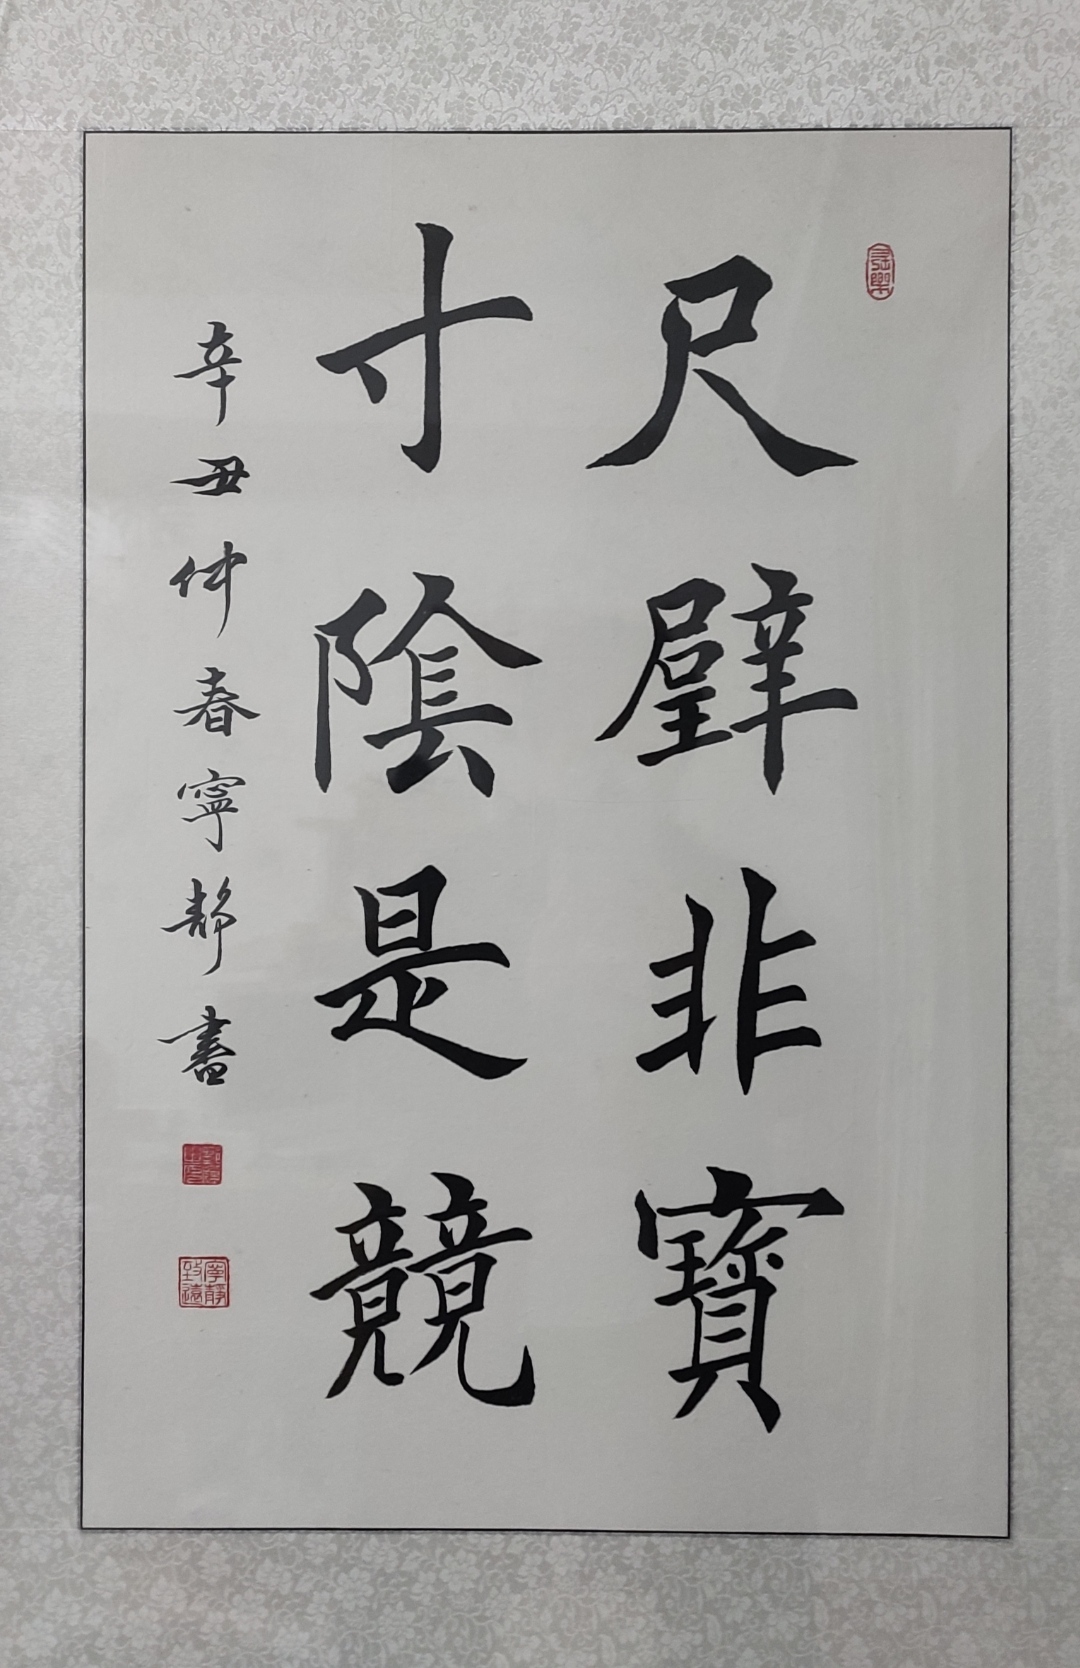 尺璧非寶
寸陰是競
辛丑仲春寧靜書
寧靜致遠